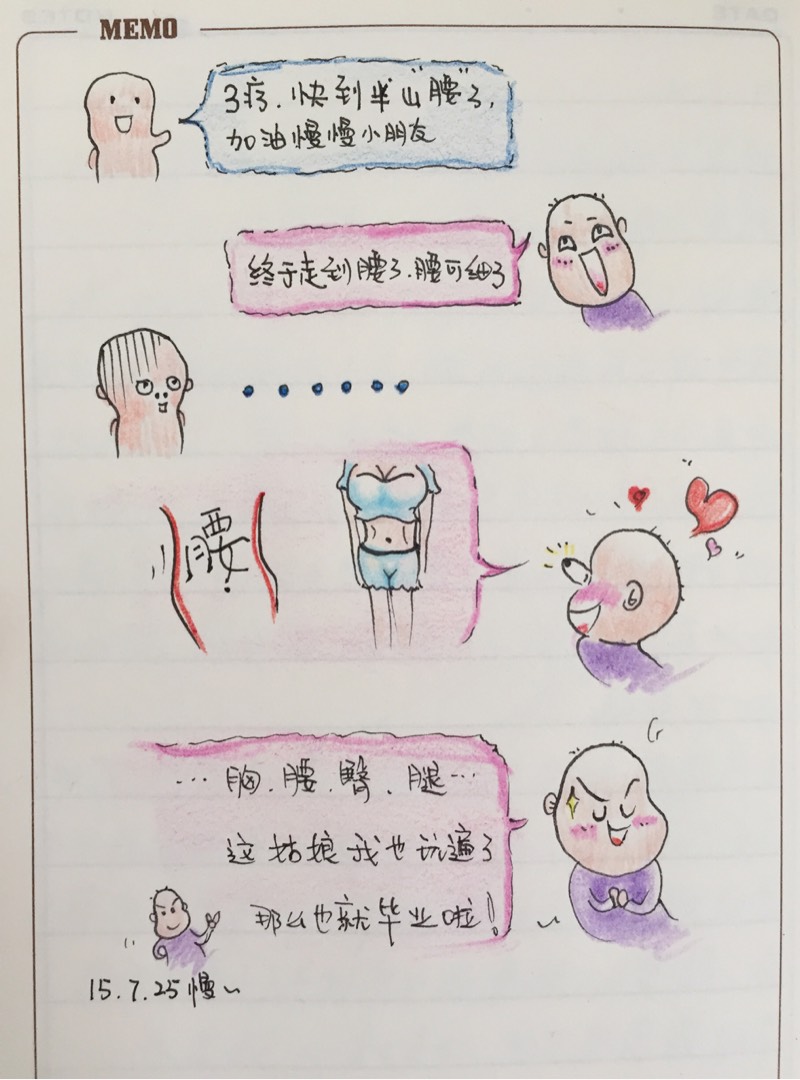 MEMO
3疗.快到半山"腰"了,
加油慢慢小朋友
终于走到腰了.腰可细了
......
腰
...胸.腰.臀.腿...
这姑娘我也玩遍了
那么也就毕业啦!
15.7.25慢~